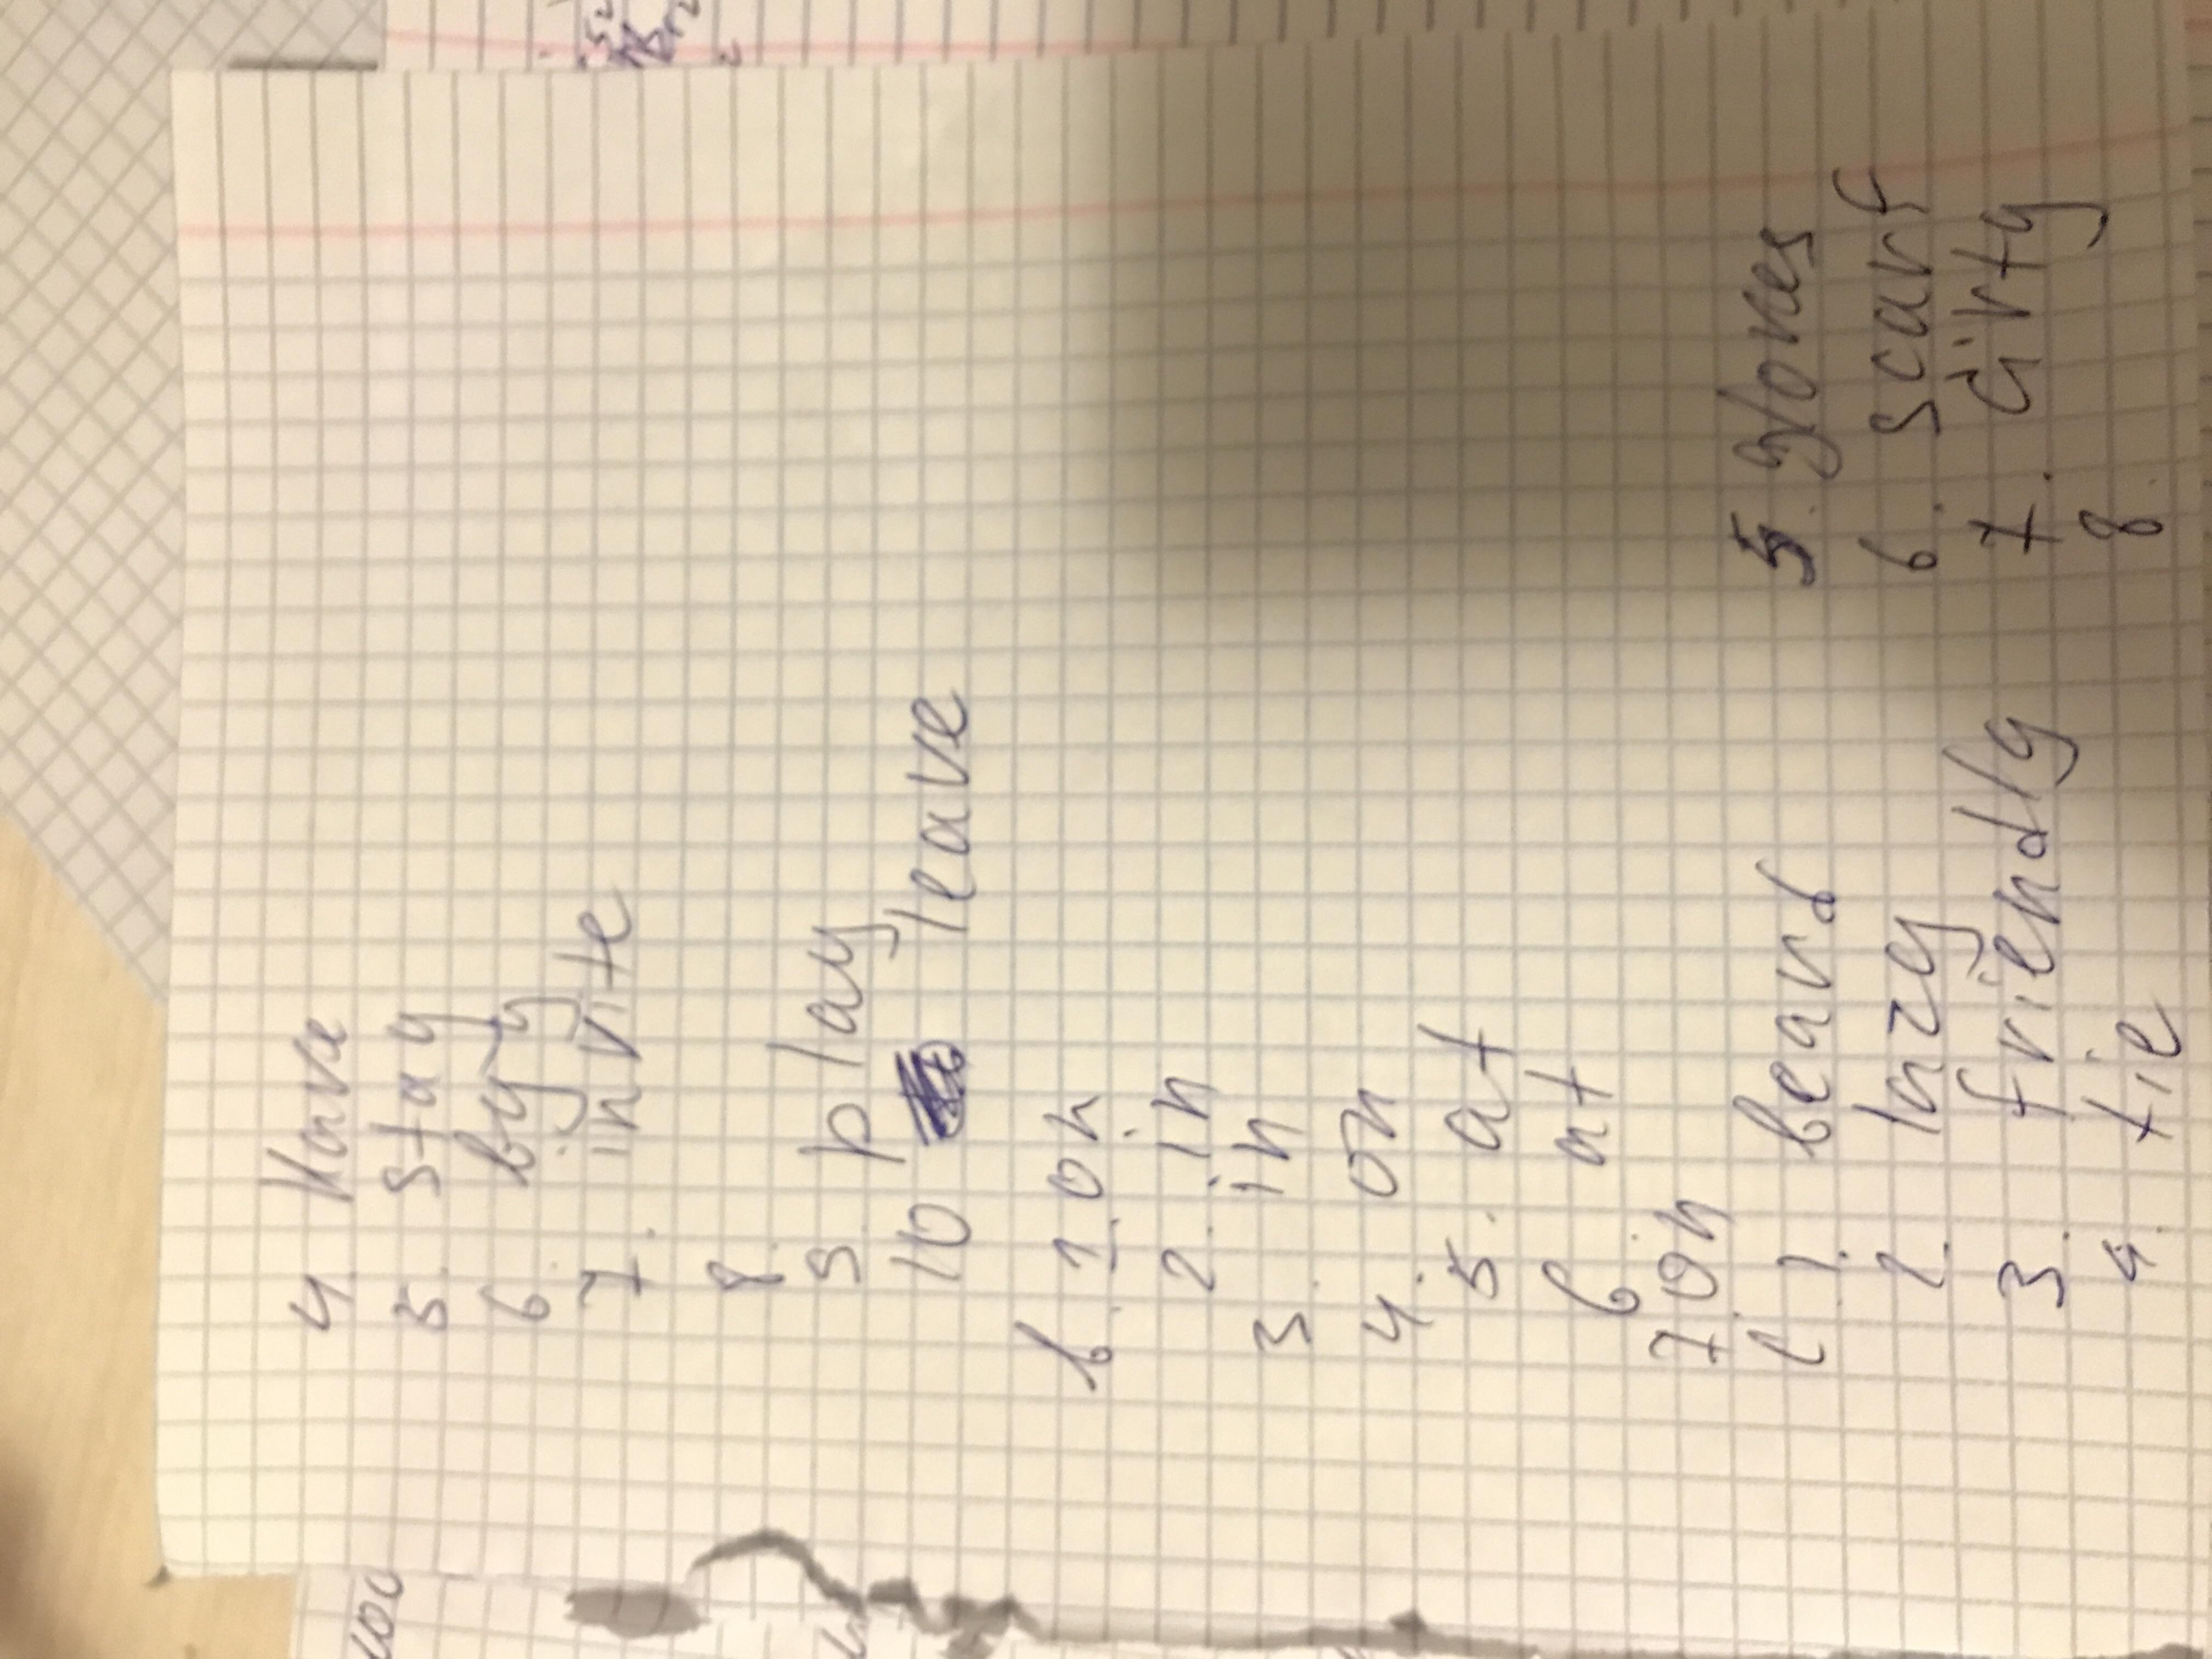 4. Have
5. Stay
6. byy
7. invite
8.
9. play
10 leave
b. 1. on
2. in
3. in
4. on
5. at
6 at
7. on
C 1. beard
2. lazy
3. friendly
4. tie
5. gloves
6. scarf
7.
8.